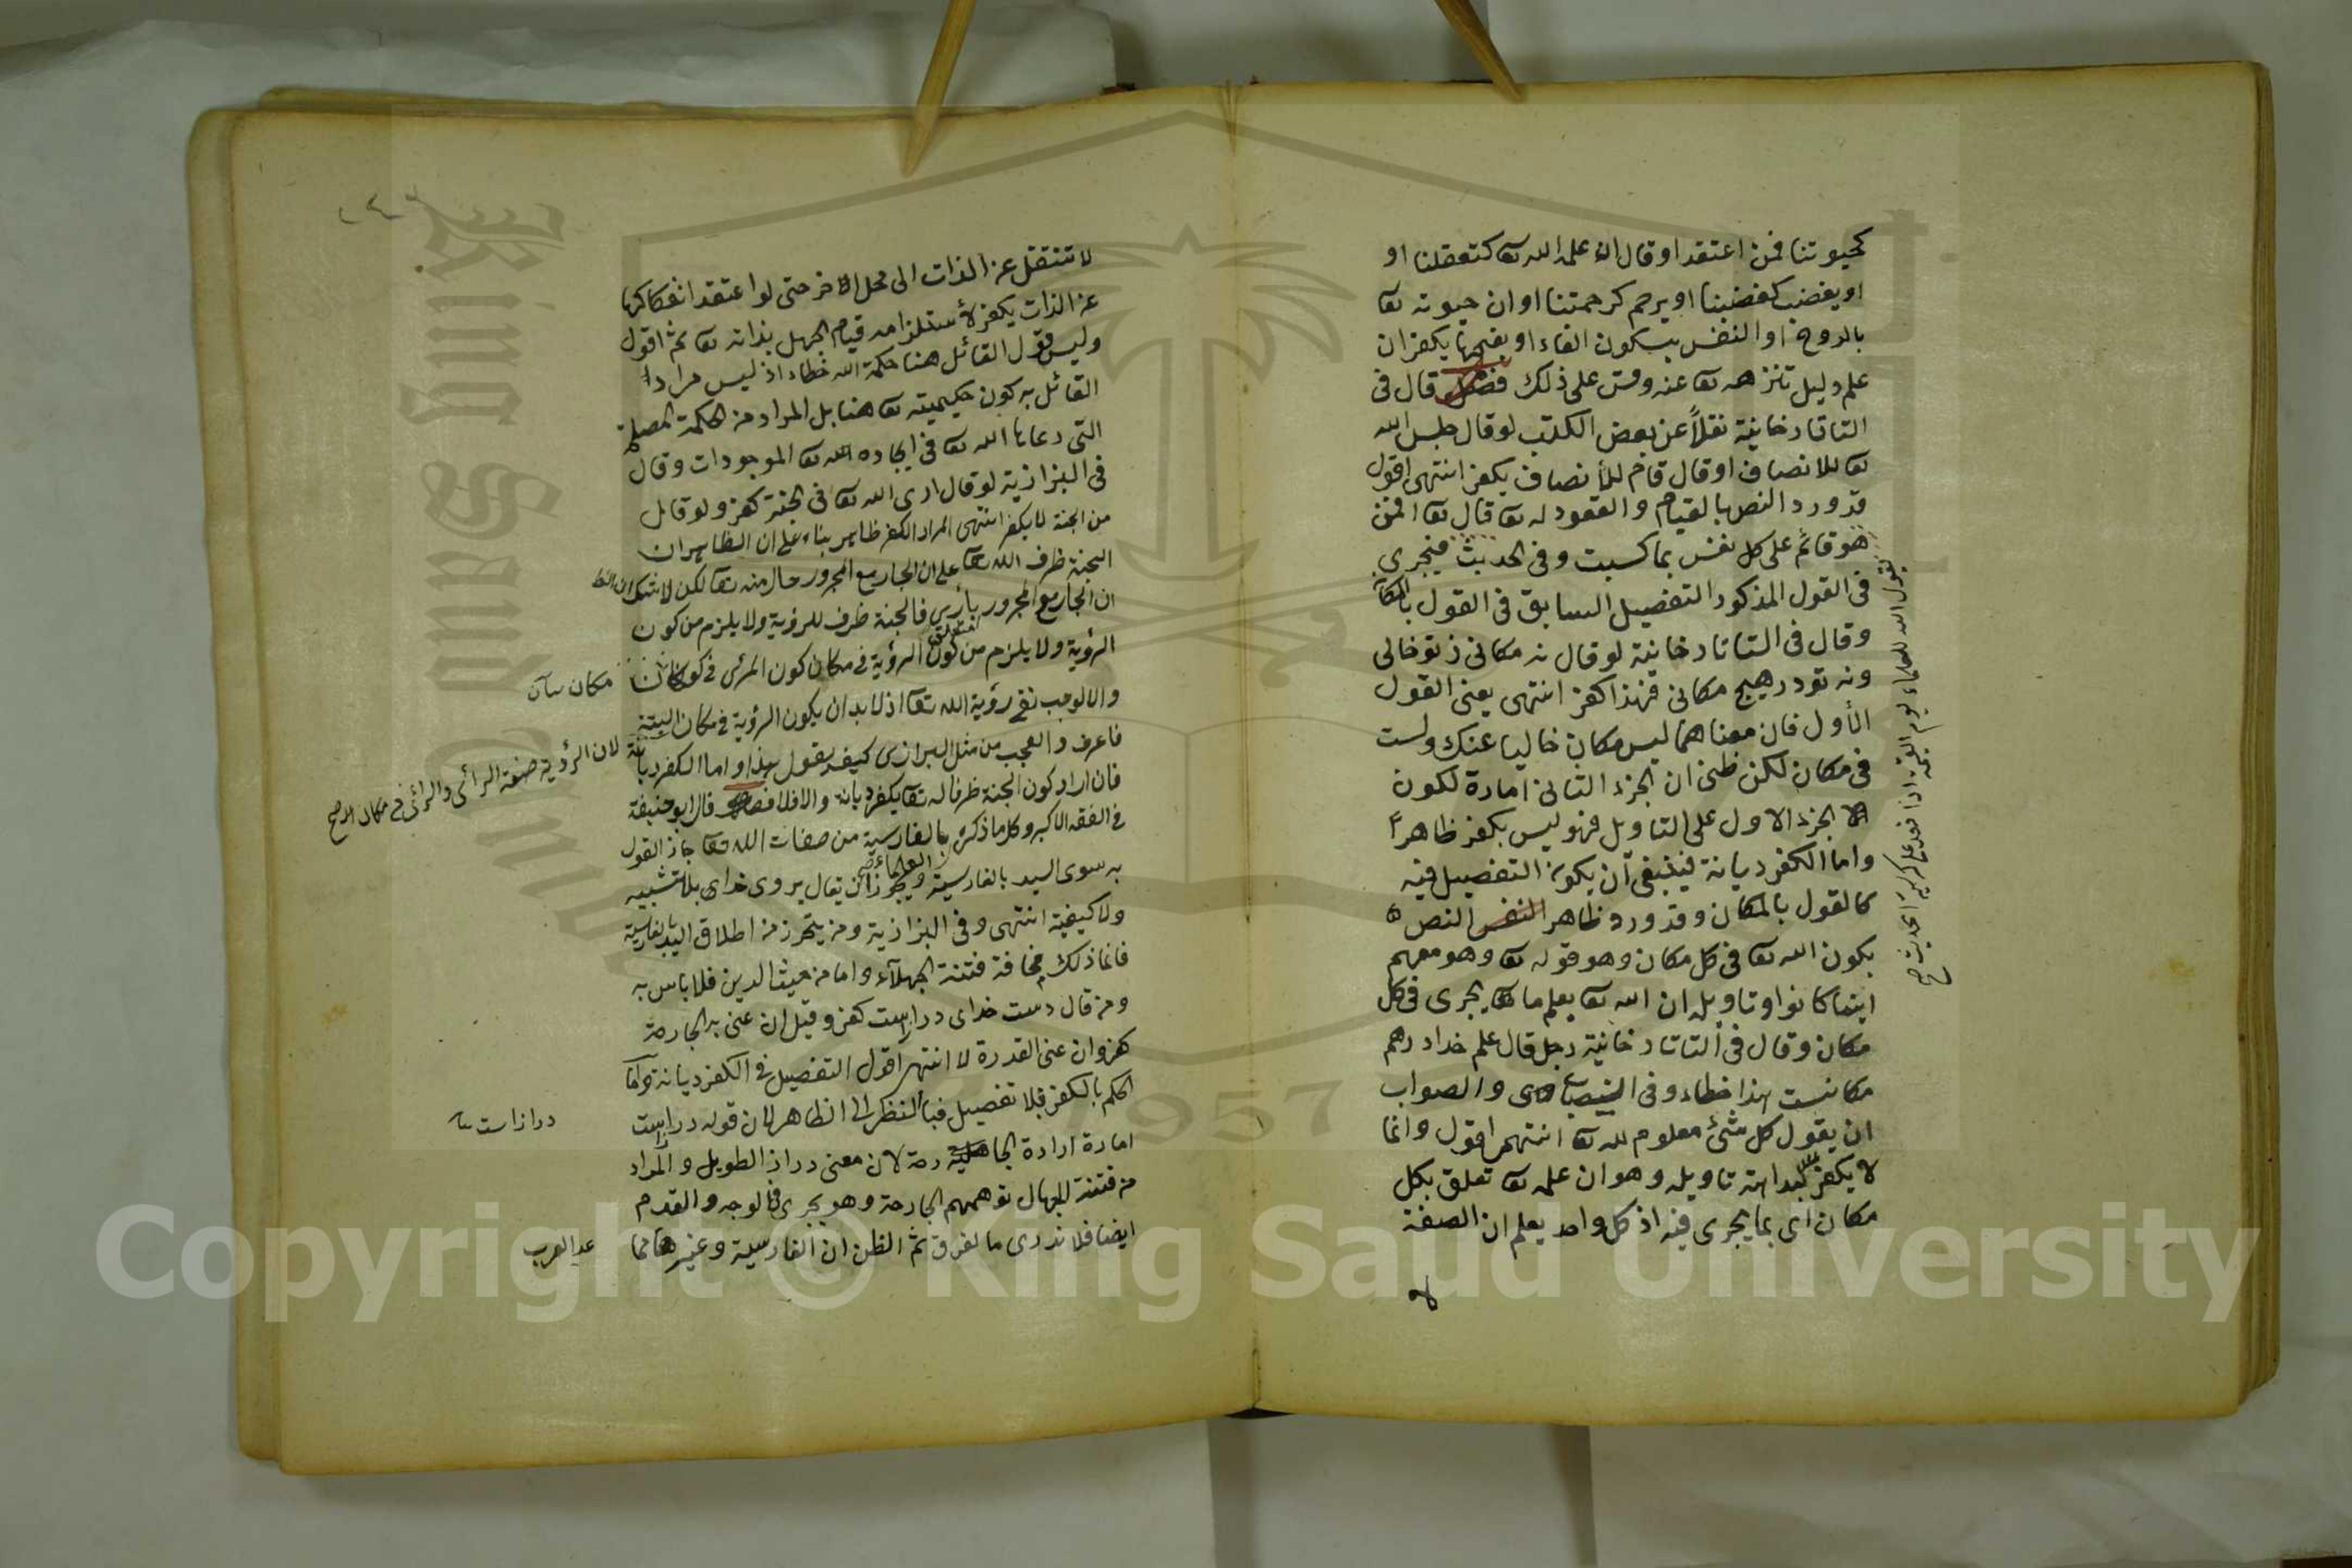 كحيوتنا فمن اعتقد او قال ان علم الله تعا كتعقلنا او
او يغضب كغضبنا او يرحم كرحمتنا او ان حيوته تعا
بالروح او النفس بسكون الفاء او بفتحها يكفر ان
علم دليل تنزهه تعا عنه وقس على ذلك فصل قال فى
التاتارخانية نقلاً عن بعض الكتب لو قال جلس الله
تعا للانصاف او قال قام للأنصاف يكفر انتهى اقول
قد ورد النص بالقيام والقعود له تعا قال تعا افمن
هو قائم على كل نفس بما كسبت وفى الحديث فيجرى
فى القول المذكور التفصيل السابق فى القول بالمكان
وقال فى التاتارخانية لو قال نه مكانى ز تو خالى
ونه تو در هيچ مكانى فهذا كفر انتهى يعنى القول
الأول فان معناهما ليس مكان خاليا عنك ولست
فى مكان لكن ظنى ان الجزء الثانى امارة لكون
الجزء الاول على التاويل فهو ليس بكفر ظاهراً
واما الكفر ديانة فينبغى ان يكون التفصيل فيه
كالقول بالمكان وقد ورد ظاهر النفس النص
بكون الله تعا فى كل مكان وهو قوله تعا وهو معهم
اينما كانوا وتاويله ان الله تعا يعلم ما يجرى فى كل
مكان وقال فى التاتارخانية رجل قال علم خدا درهم
مكانست هذا خطاء وفى والصواب
ان يقول كل شئ معلوم لله تعا انتهى اقول وانما
لا يكفر لبداهة تاويله وهو ان علمه تعا تعلق بكل
مكان اى بما يجرى فيه اذ كل واحد يعلم ان الصفة
لا
يقول الله للعلماء يوم القيمة اذا قعد على كرسيه الحديث صح
لا تنتقل عن الذات الى محل الاخر حتى لو اعتقد انفكاكها
عن الذات يكفر لأستلزامه قيام الجهل بذاته تعا ثم اقول
وليس قول القائل هنا حكمة الله خطاء اذ ليس مراد
القائل به كون حكيميته تعا هنا بل المراد من الحكمة المصلحة
التى دعاها الله تعا فى ايجاده الله تعا الموجودات وقال
فى البزازية لو قال ارى الله تعا فى الجنة كفر ولو قال
من الجنة لا يكفر انتهى المراد الكفر ظاهر بناء على ان الظاهر ان
الجنة ظرف الله تعا على ان الجار مع المجرور حال منه تعا لكن لا شك ان
ان الجار مع المجرور بارى فالجنة ظرف للرؤية ولا يلزم من كون
الرؤية ولا يلزم من كون الرؤية فى مكان كون المرئى فى
مكان
والا لوجب نفى رؤية الله تعا اذ لا بد ان يكون الرؤية فى مكان البتة
لان الرؤية صفة الرائى والرائى فى مكان صح
فاعرف والعجب من مثل البزازى كيف يقول هذا واما الكفر ديانة
فان اراد كون الجنة ظرفا له تعا يكفر ديانة والا فلا فصل قال ابو حنيفة
فى الفقه الاكبر وكل ما ذكره العلماء بالفارسية من صفات الله تعا جاز القول
به سوى اليد بالفارسية ويجوز ان يقال بروى خداى بلا تشبيه
ولا كيفية انتهى وفى البزازية ومن يتحرز من اطلاق اليد بالفارسية
فانما ذلك مخافة فتنة الجهلاء واما من حيث الدين فلا باس به
ومن قال دست خداى دراست كفر وقيل ان عنى به الجارحة
كفر وان عنى القدرة لا انتهى اقول التفصيل فى الكفر ديانة واما
الحكم بالكفر فلا تفصيل فبالنظر الى الظاهر لان قوله دراست
دراز است
امارة ارادة الجارحة لان معنى دراز الطويل والمراد
من فتنة الجهال توهمهم الجارحة وهو يجرى فى الوجه والقدم
ايضا فلا ندرى ما الفرق ثم الظن ان الفارسية وغيرها مما
عدا العرب
King Saud University
1957
Copyright © King Saud University